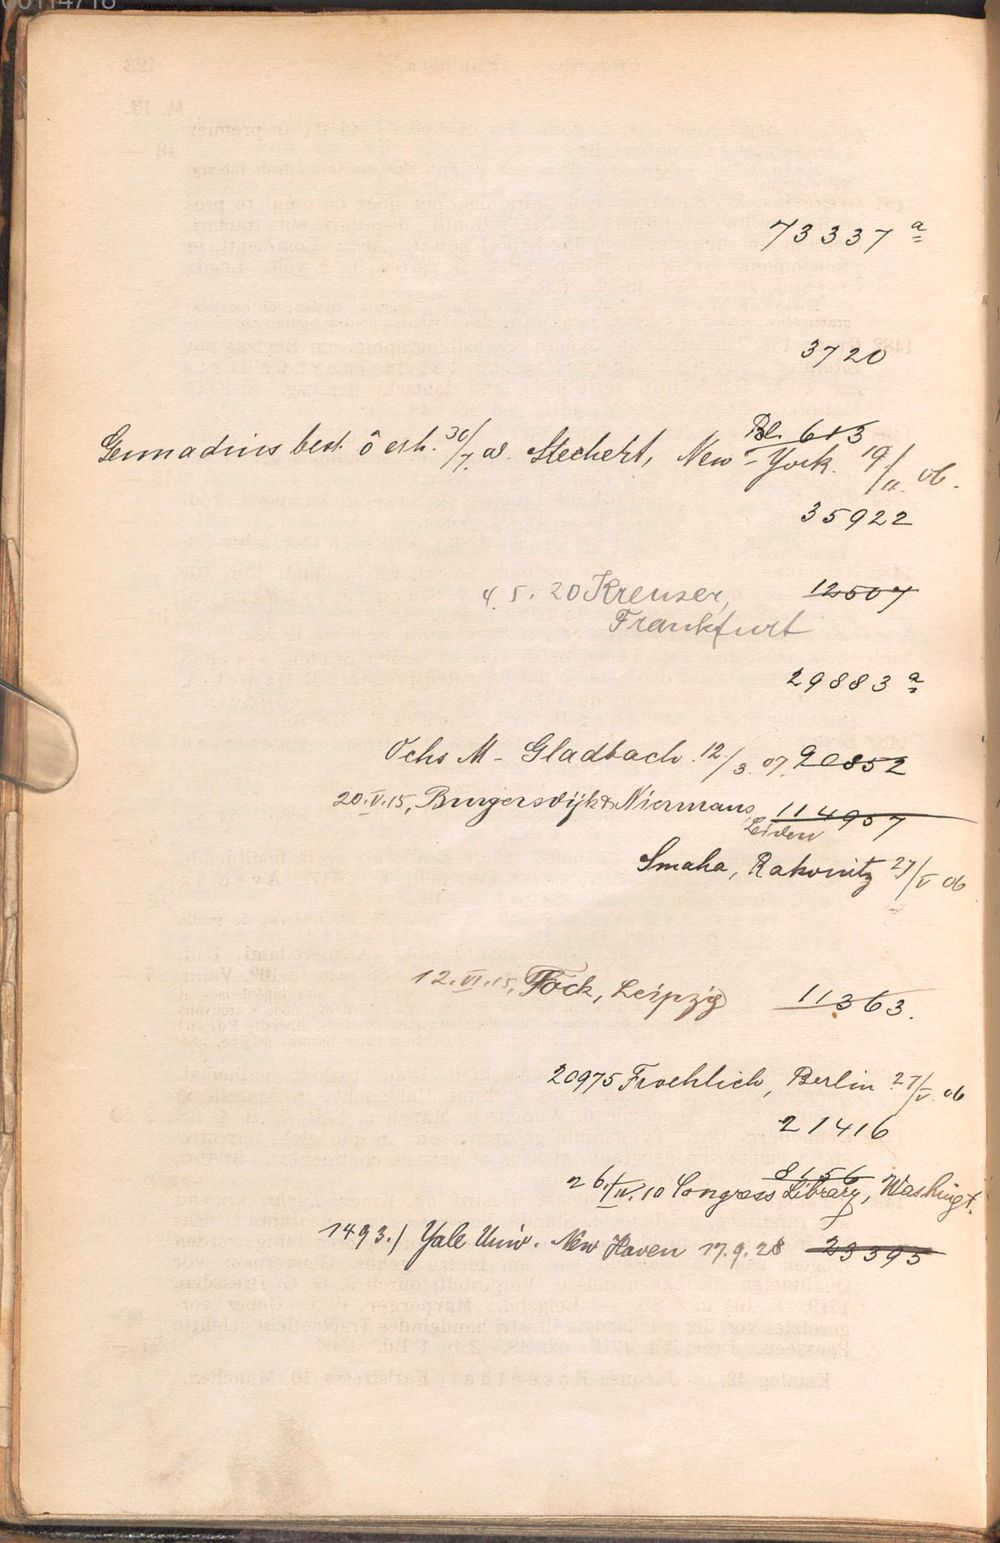 00114718
73337 a
3720
Bl. 613
Gennadius best. ô erh. 30/7. 08. Stechert, New-York. 19/11. 06.
35922
4. 5. 20 Kreuser, 12507
Frankfurt
29883 a
Ochs M-Gladbach. 12./3. 07. 20852
20.V.15, Burgersdijk & Niermans, 114957
Leiden
Smaha, Rakonitz 27/V 06
12.VI.15, Fock, Leipzig 11363.
20975 Froehlich, Berlin 27/V. 06
21416
8156
26/IV.10 Congress Library, Washingt.
1493./ Yale Univ. New Haven 17.9.28 23395